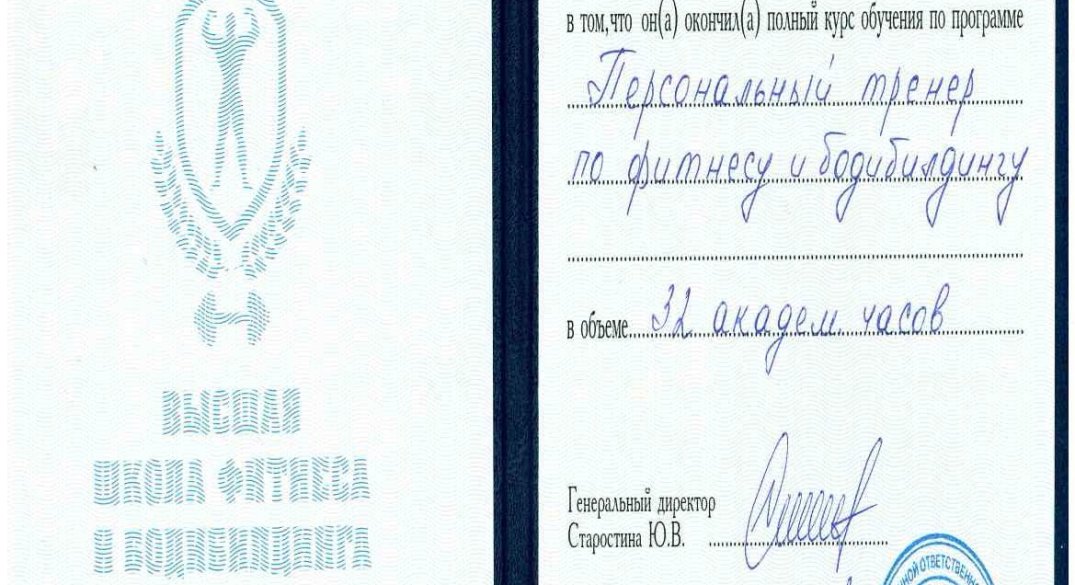 ВЫСШАЯ
ШКОЛА ФИТНЕСА
И БОДИБИЛДИНГА
в том, что он(а) окончил(а) полный курс обучения по программе
Персональный тренер
по фитнесу и бодибилдингу
в объеме 32 академ. часов
Генеральный директор
Старостина Ю.В.